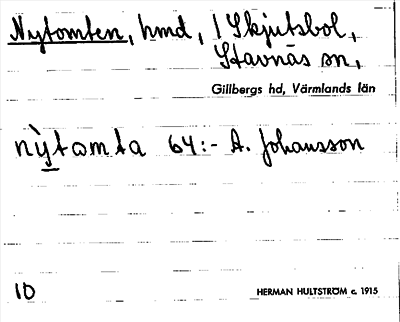 Nytomten, hmd, I Skjutsbol,
Stavnäs sn,
Gillbergs hd, Värmlands län
nỳtomta 64:- A. Johansson
10
HERMAN HULTSTRÖM c. 1915